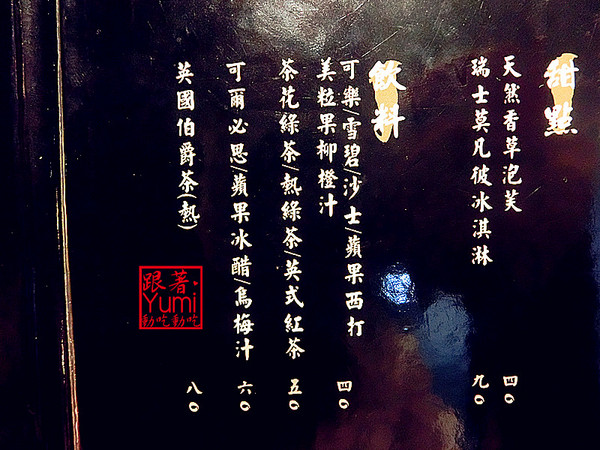 甜點
天然香草泡芙 四〇
瑞士莫凡彼冰淇淋 九〇
飲料
可樂/雪碧/沙士/蘋果西打
美粒果柳橙汁 四〇
茶花綠茶/熱綠茶/英式紅茶 五〇
可爾必思/蘋果冰醋/烏梅汁 六〇
英國伯爵茶(熱) 八〇
跟著
Yumi
動吃動吃